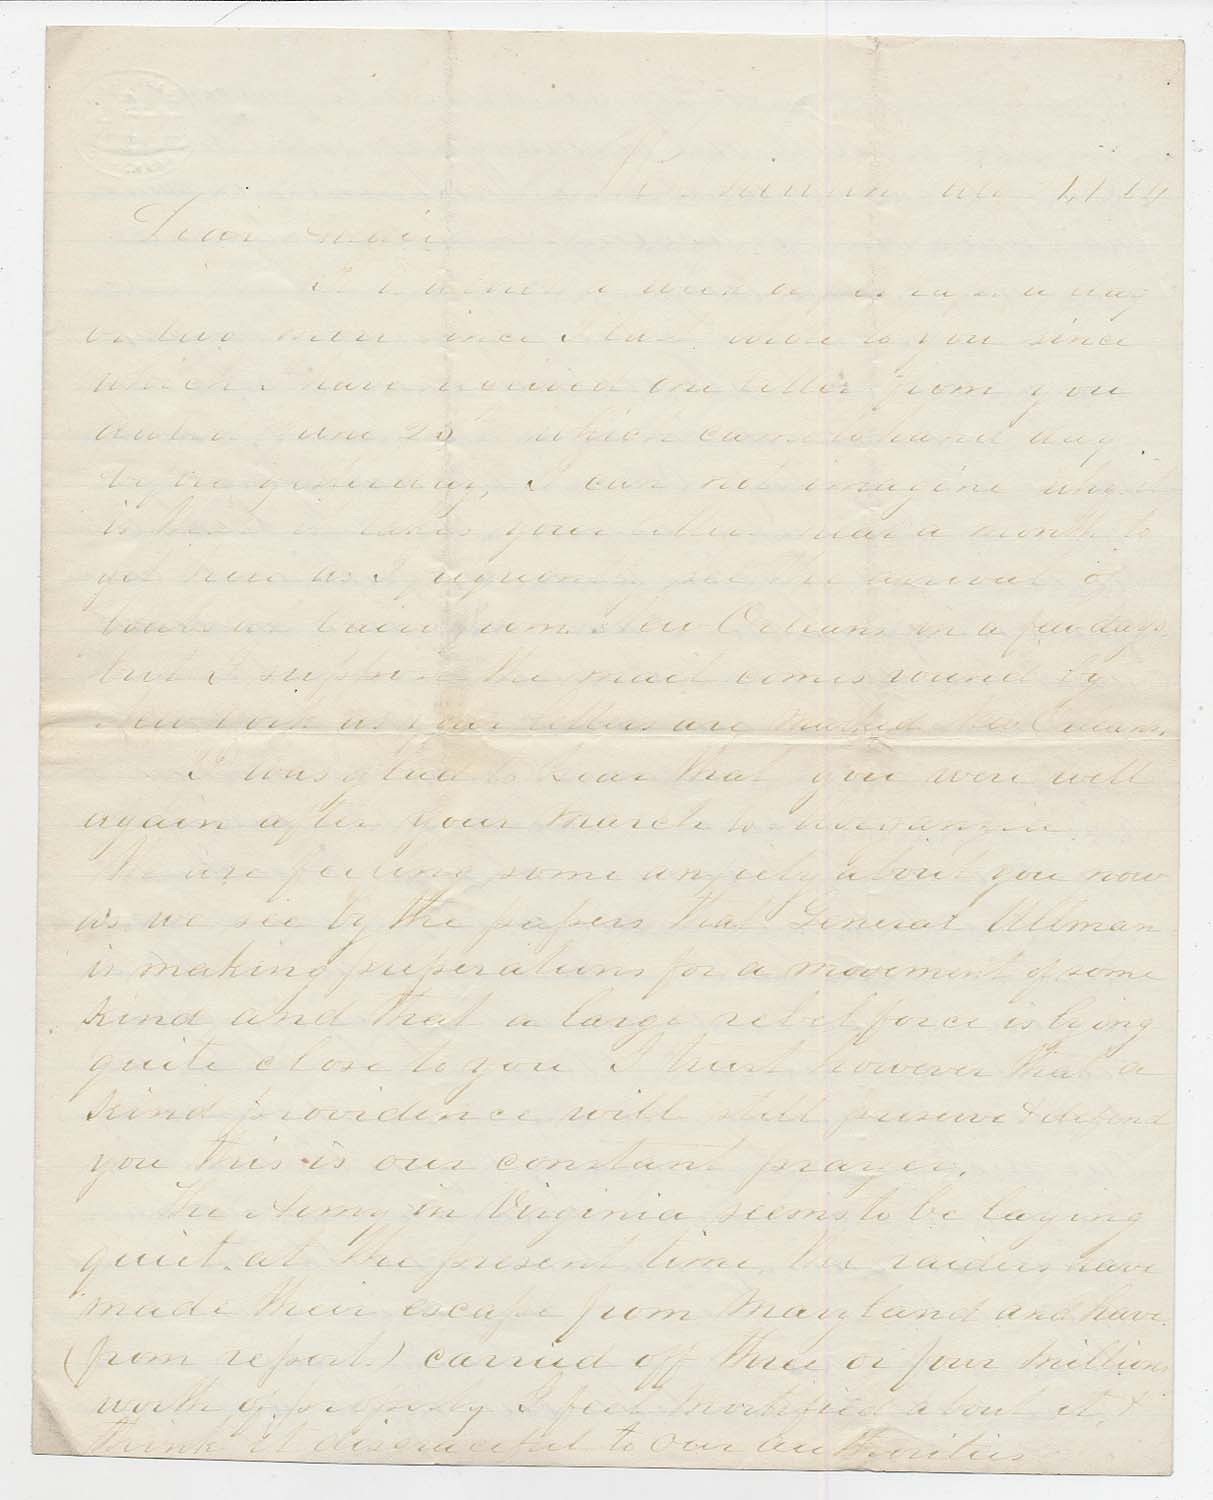 Dear
a week
or two more since I last wrote to you since
which I have received one letter from you
dated June 25th which came to hand day
before yesterday, I can not imagine why it
is that it takes your letters near a month to
get here as I frequently see the arrival of
boats at Cairo from New Orleans in a few days,
but I suppose the mail comes round by
New York as your letters are marked New Orleans.
I was glad to hear that you were well
again after your march to
We are feeling some anxiety about you now
as we see by the papers that General Ullman
is making preperations for a movement of some
kind and that a large rebel force is lying
quite close to you I trust however that a
kind providence will still preserve & defend
you this is our constant prayer.
The Army in Virginia seems to be laying
quiet at the present time, the raiders have
made their escape from Maryland and have
(from report) carried off three or four millions
worth of property I feel mortified about it, &
think it disgraceful to our authorities